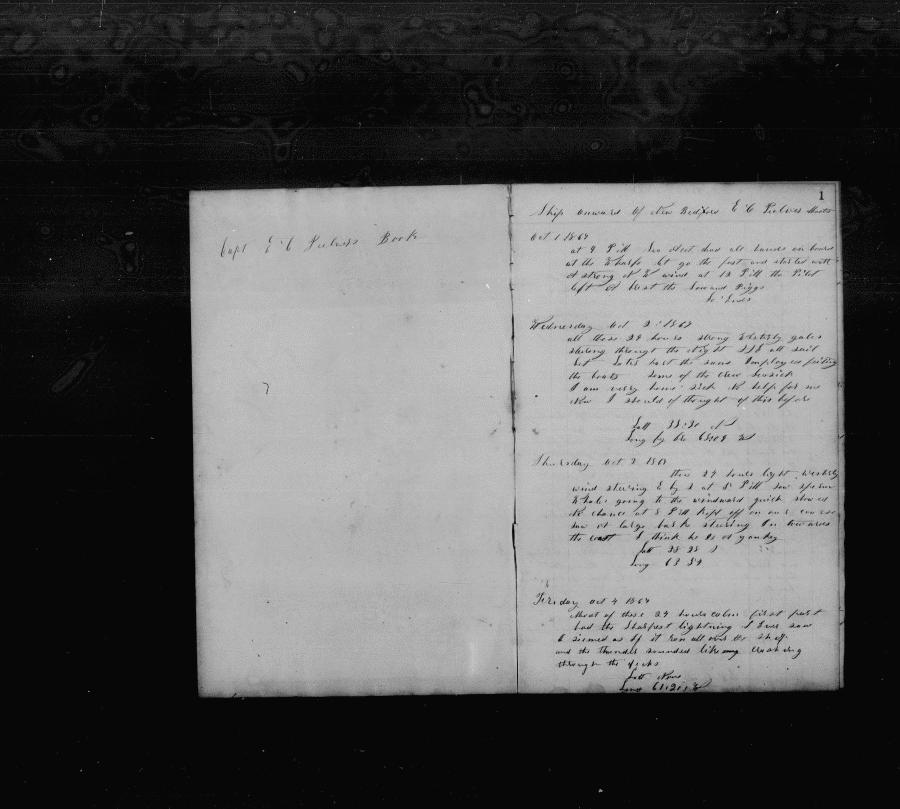 Capt E C Pulver's Book
1
Ship onward Of New Bedford E C Pulver Master
Oct 1 1867
at 9 P M had all hands on board
at the Wharfe let go the fast and started with
A strong N W wind at 12 P M the Pilot
left of the Sow and Piggs
So Ends
Wednesday Oct 2 1867
all these 24 hours strong Westerly gales
stering through the Night S S E all sail
set later part the same Employed fitting
the boats some of the crew Seasick
I am verry home sick No help for me
Now I should of thought of this before
Latt 38:30 N
Long by 68:08 W
Thursday Oct 3 1867
thes 24 hours light westerly
wind stering E by S at 5 P M saw sperm
Whales going to the windward quick
No chance at 5 P M kept off on our course
saw A large bark steering In towards
the coast I think he is A yankey
Latt 38 28
Long 63 54
Friday oct 4 1867
Most of these 24 hours calm first part
had the Sharpest lightning I Ever saw
It seemed as If it ran all over the Ship
and the thunder sounded like crashing
through the decks
Latt None
Long 61:21: W